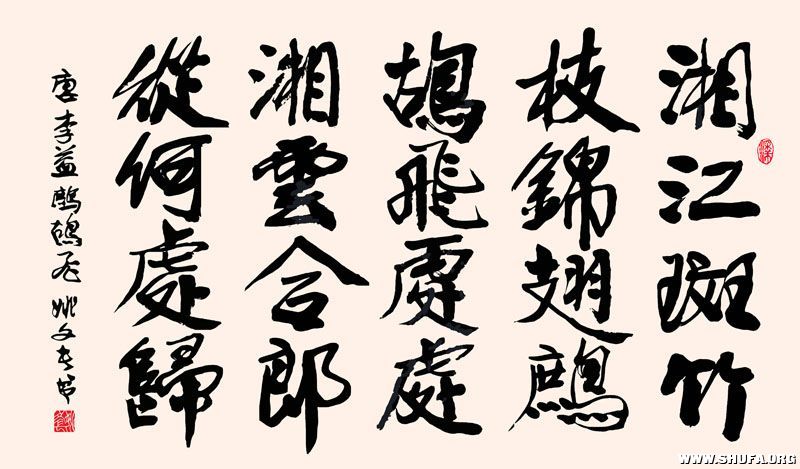 湘江斑竹
枝錦翅鷓
鴣飛處處
湘雲合郎
從何處歸
唐李益鷓鴣飛 姚文
WWW.SHUFA.ORG